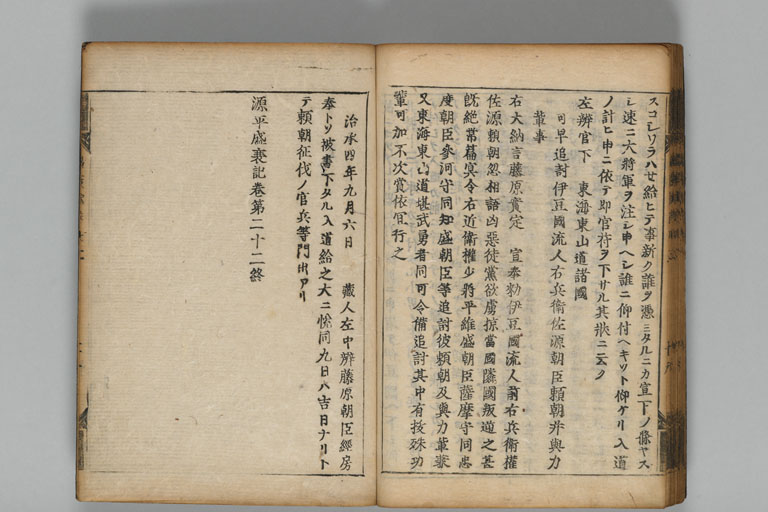 スコシワラハせ給ヒテ事新ク誰ヲ憑ミタルニカ宣下ノ條ヤス
シ速ニ大將軍ヲ注シ申ヘシ誰ニ仰付ヘキソト仰ケリ入道
ノ計ヒ申ニ依テ即官符ヲ下サル其狀ニ云ク
左辨官下 東海東山道諸國
可早追討伊豆國流人右兵衛佐源朝臣頼朝并與力
輩事
右大納言藤原實定 宣奉勅伊豆國流人前右兵衛權
佐源頼朝忽相語凶惡徒黨欲虜掠當國隣國叛逆之甚
既絶常篇冥令右近衛權少將平維盛朝臣薩摩守同忠
度朝臣參河守同知盛朝臣等追討彼頼朝及與力輩兼
又東海東山道堪武勇者同可令備追討其中有抜殊功
輩可加不次賞依宜行之
治承四年九月六日 藏人左中辨藤原朝臣經房
奉トソ被書下タル入道給之大ニ悦同九日ハ吉日ナリト
テ頼朝征伐ノ官兵等門出アリ
源平盛衰記卷第二十二終